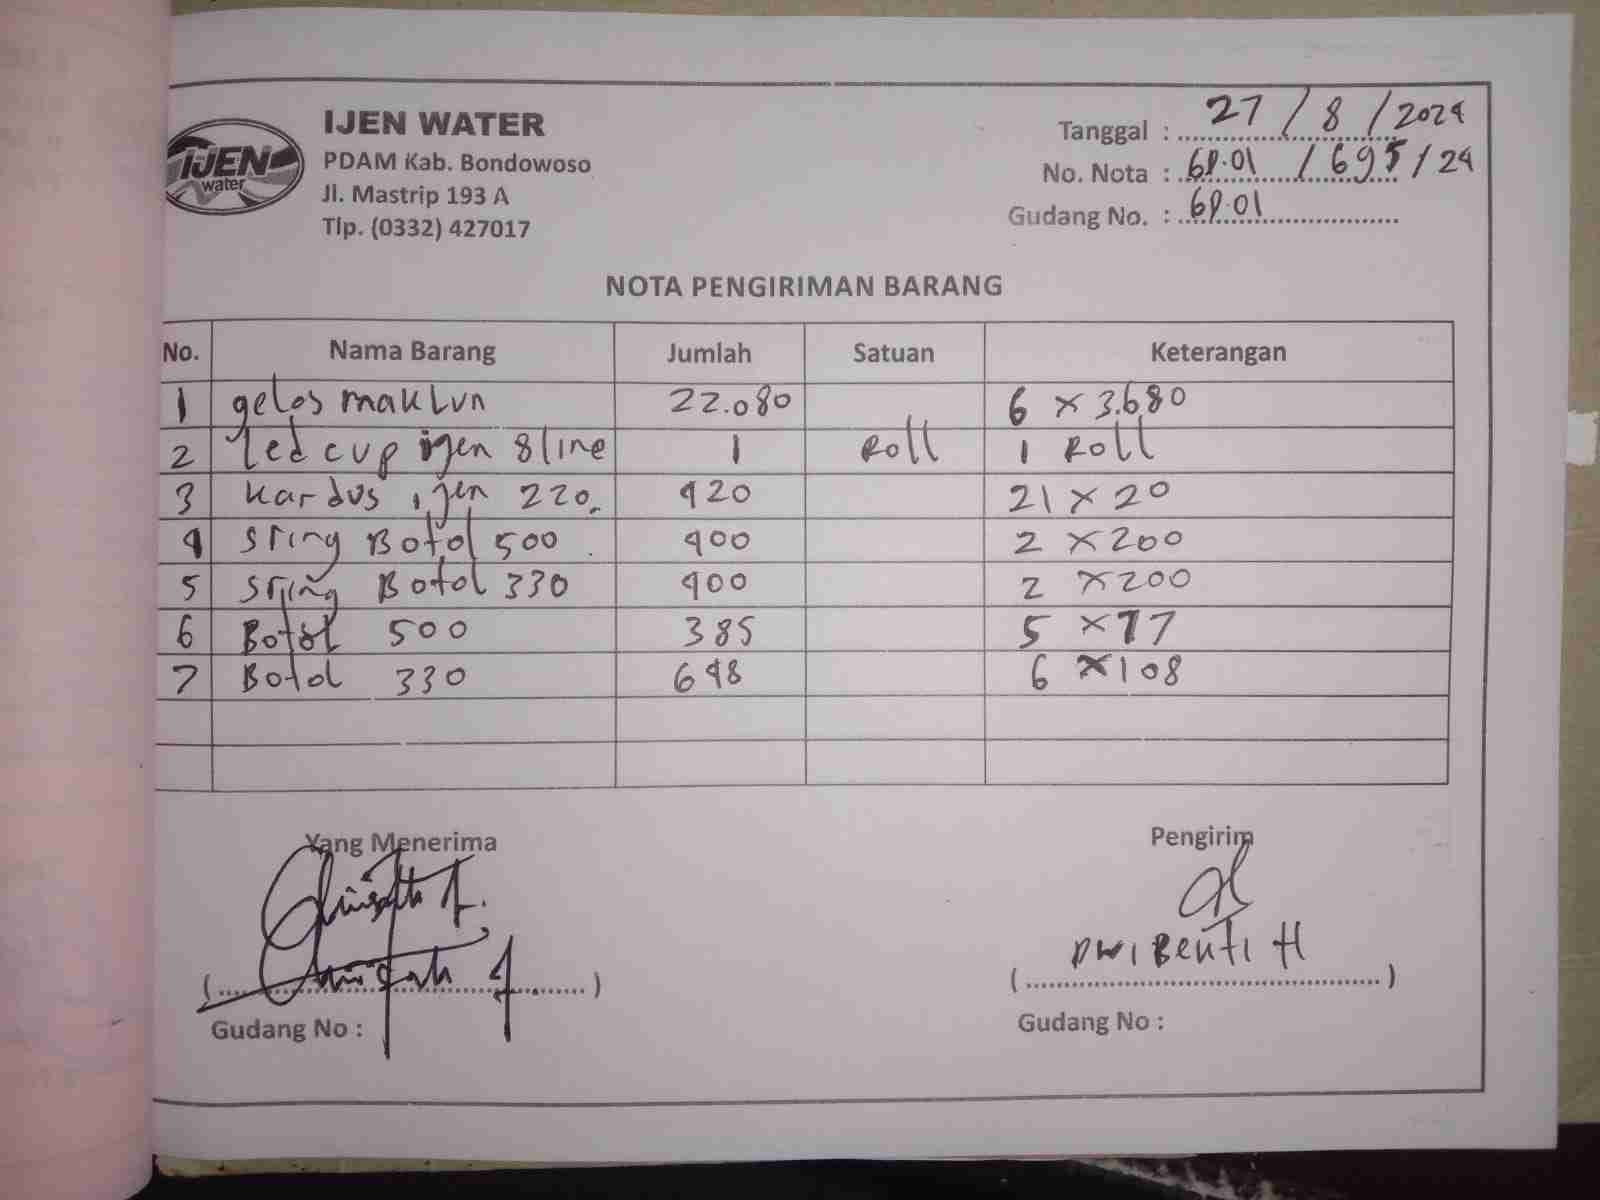 IJEN
water
IJEN WATER
PDAM Kab. Bondowoso
Jl. Mastrip 193 A
Tlp. (0332) 427017
Tanggal : 27 / 8 / 2024
No. Nota : GP.01 / 695 / 24
Gudang No. : GP.01
NOTA PENGIRIMAN BARANG
No. Nama Barang Jumlah Satuan Keterangan
1 gelas maklun 22.080 6 x 3.680
2 led cup ijen 8 line 1 Roll 1 Roll
3 kardus ijen 220 420 21 x 20
4 sring Botol 500 400 2 x 200
5 sring Botol 330 400 2 x 200
6 Botol 500 385 5 x 77
7 Botol 330 648 6 x 108
Yang Menerima Pengirim
Dwi Benti H
Gudang No : Gudang No :